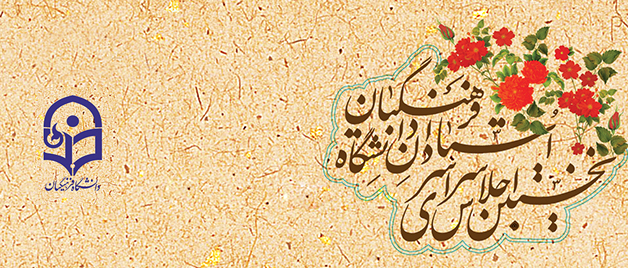 نخستین اجلاس سراسری
استادان دانشگاه
فرهنگیان
دانشگاه فرهنگیان